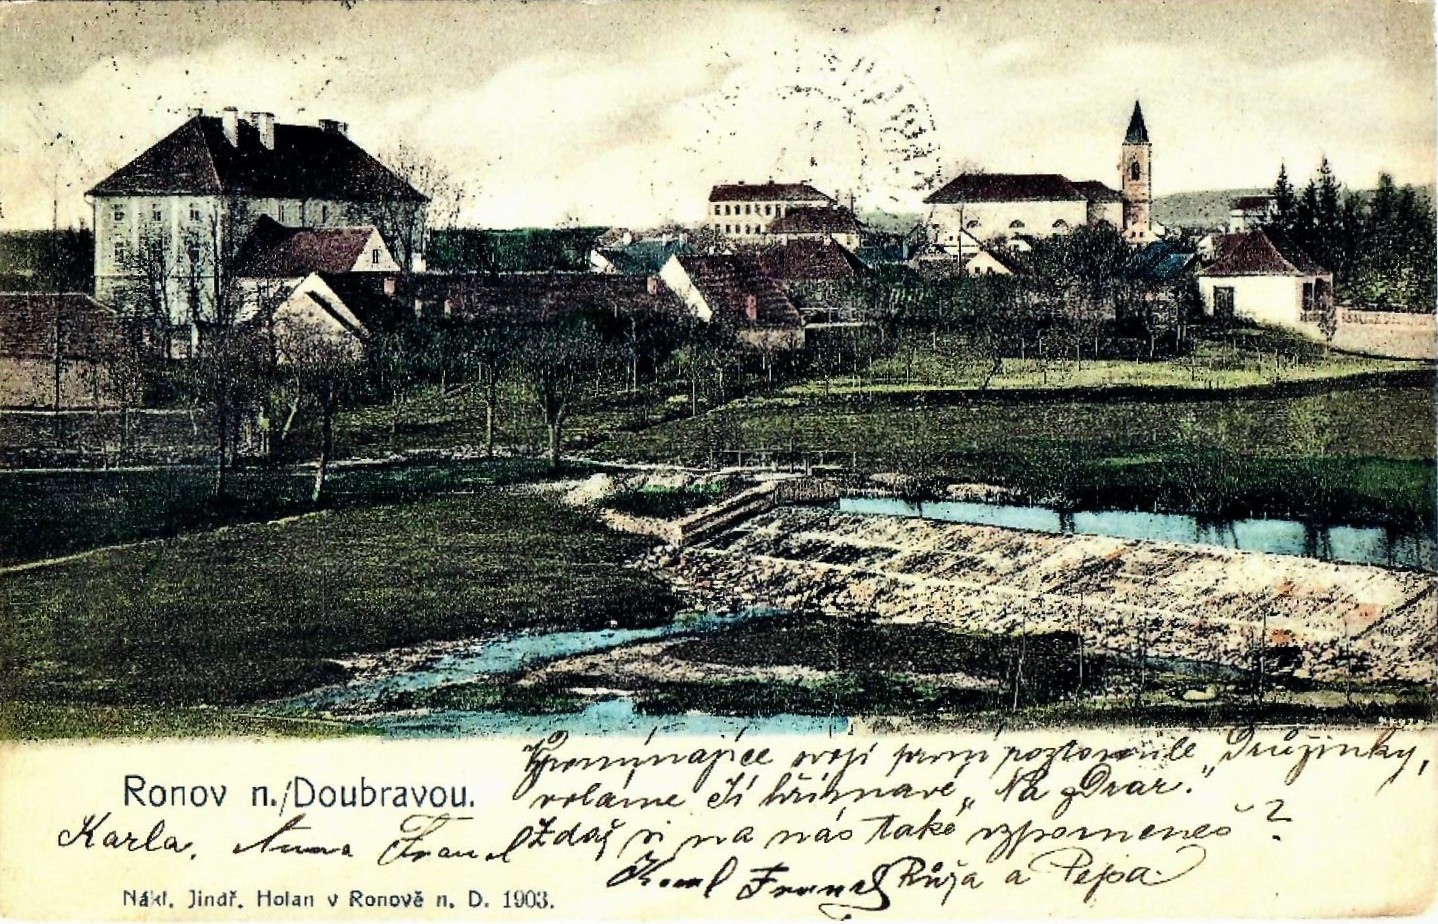 Vzpomínajíce svojí první poztovníle „Družinky,
voláme Jí hřímavé „Na zdar."
Ronov n./Doubravou.
Karla, Anna
Zdaž si na nás také vzpomeneš?
Karel Růža a Pepa.
Nákl. Jindř. Holan v Ronově n. D. 1903.